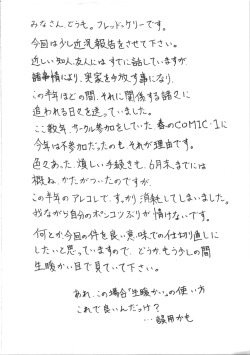 みなさん、どうも。フレッドケリーです。
今回は少し近況報告をさせて下さい。
近しい知人、友人にはすでに話していますが、
諸事情により、実家を手放す事になり、
この半年ほどの間、それに関係する諸々に
追われる日々を送っていました。
ここ数年、サークル参加をしていた春のCOMIC1に
今年は不参加だったのも、それが理由です。
色々あった煩しい手続きも、6月末までには
概ね、かたがついたのですが、
この半年のアレコレで、すっかり消耗してしまいました。
我ながら自分のポンコツぶりが情けないです。
何とか、今回の件を良い意味での仕切り直しに
したいと思っていますので、どうか、もう少しの間
生暖かい目で見ていて下さい。
あれ、この場合「生暖かい」の使い方
これで良いんだっけ?
…誤用かも